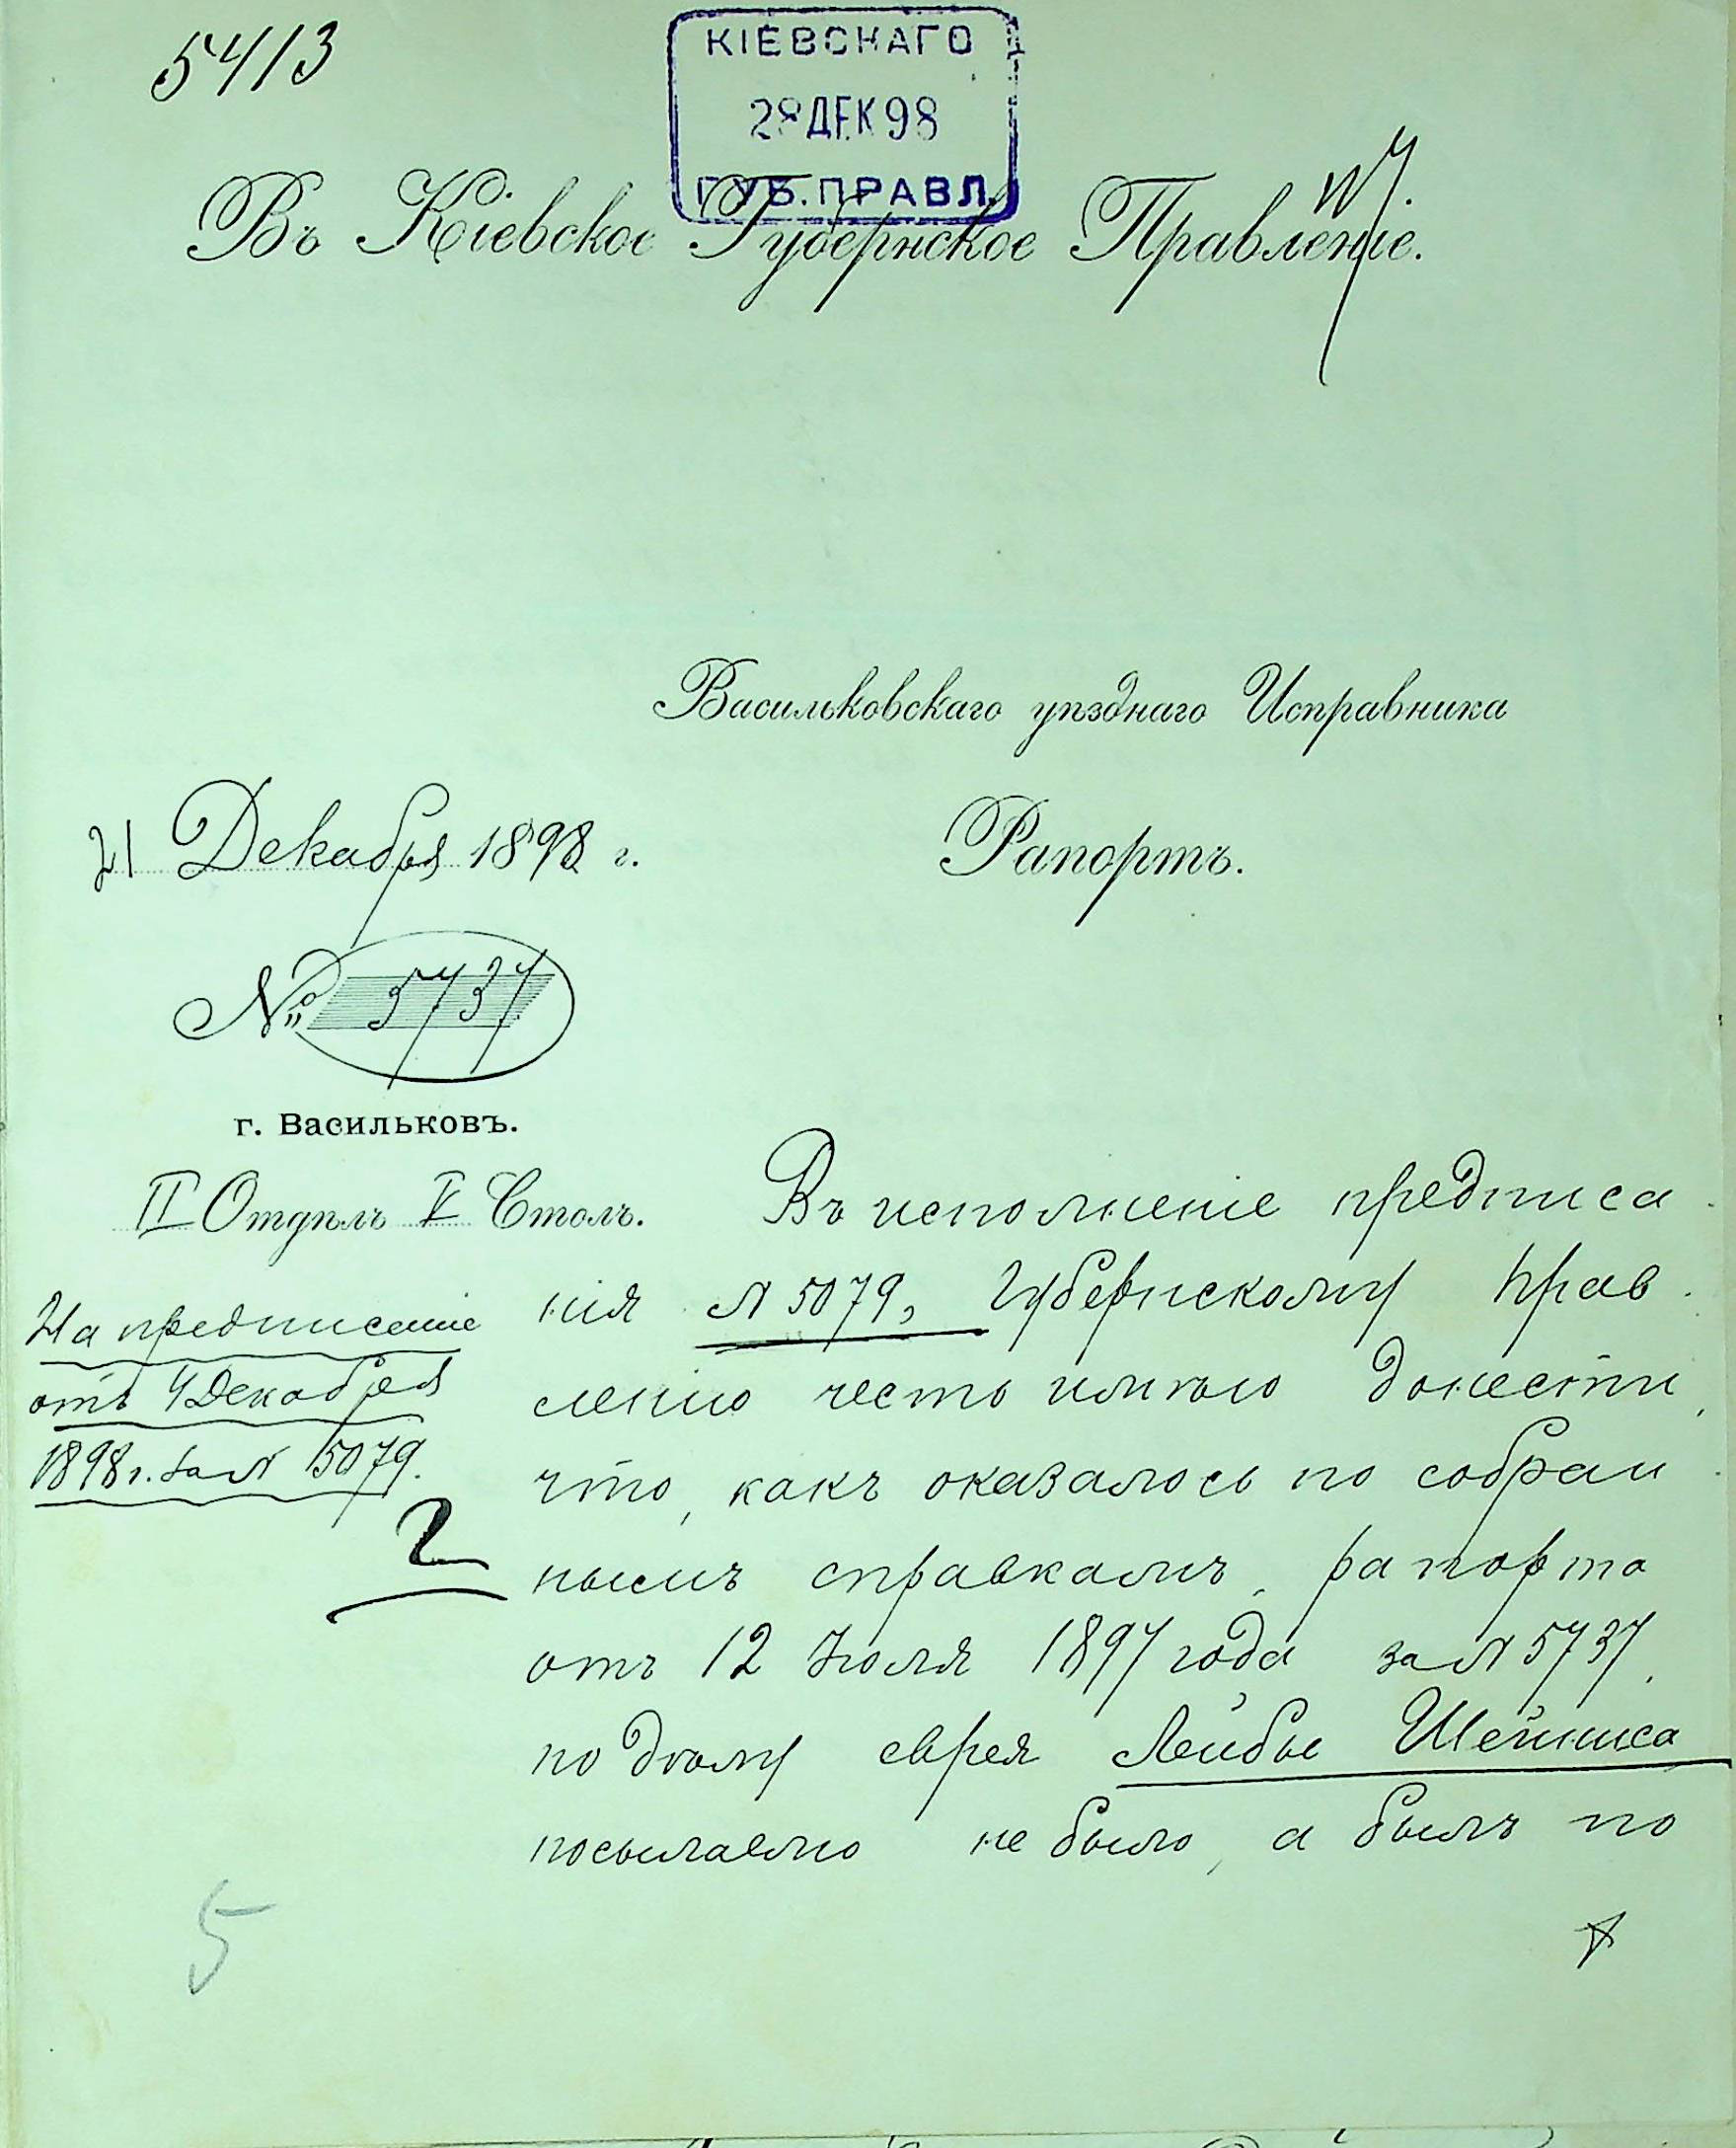 5413
КІЕВСКАГО
28 ДЕК 98
ГУБ. ПРАВЛ.
Въ Кіевское Губернское Правленіе.
Васильковскаго уѣзднаго Исправника
21 Декабря 1898 г.
Рапортъ.
№ 5737
г. Васильковъ.
II Отдѣлъ V Столъ.
На предписаніе
отъ 4 Декабря
1898 г. за № 5079.
2
Въ исполненіе предписа
нія № 5079, Губернскому Прав
ленію честь имѣю донести,
что, какъ оказалось по собран
нымъ справкамъ, рапорта
отъ 12 Іюля 1897 года за № 5737,
по дѣлу еврея Лейбы Шейниса
посылаемо не было, а былъ по
5